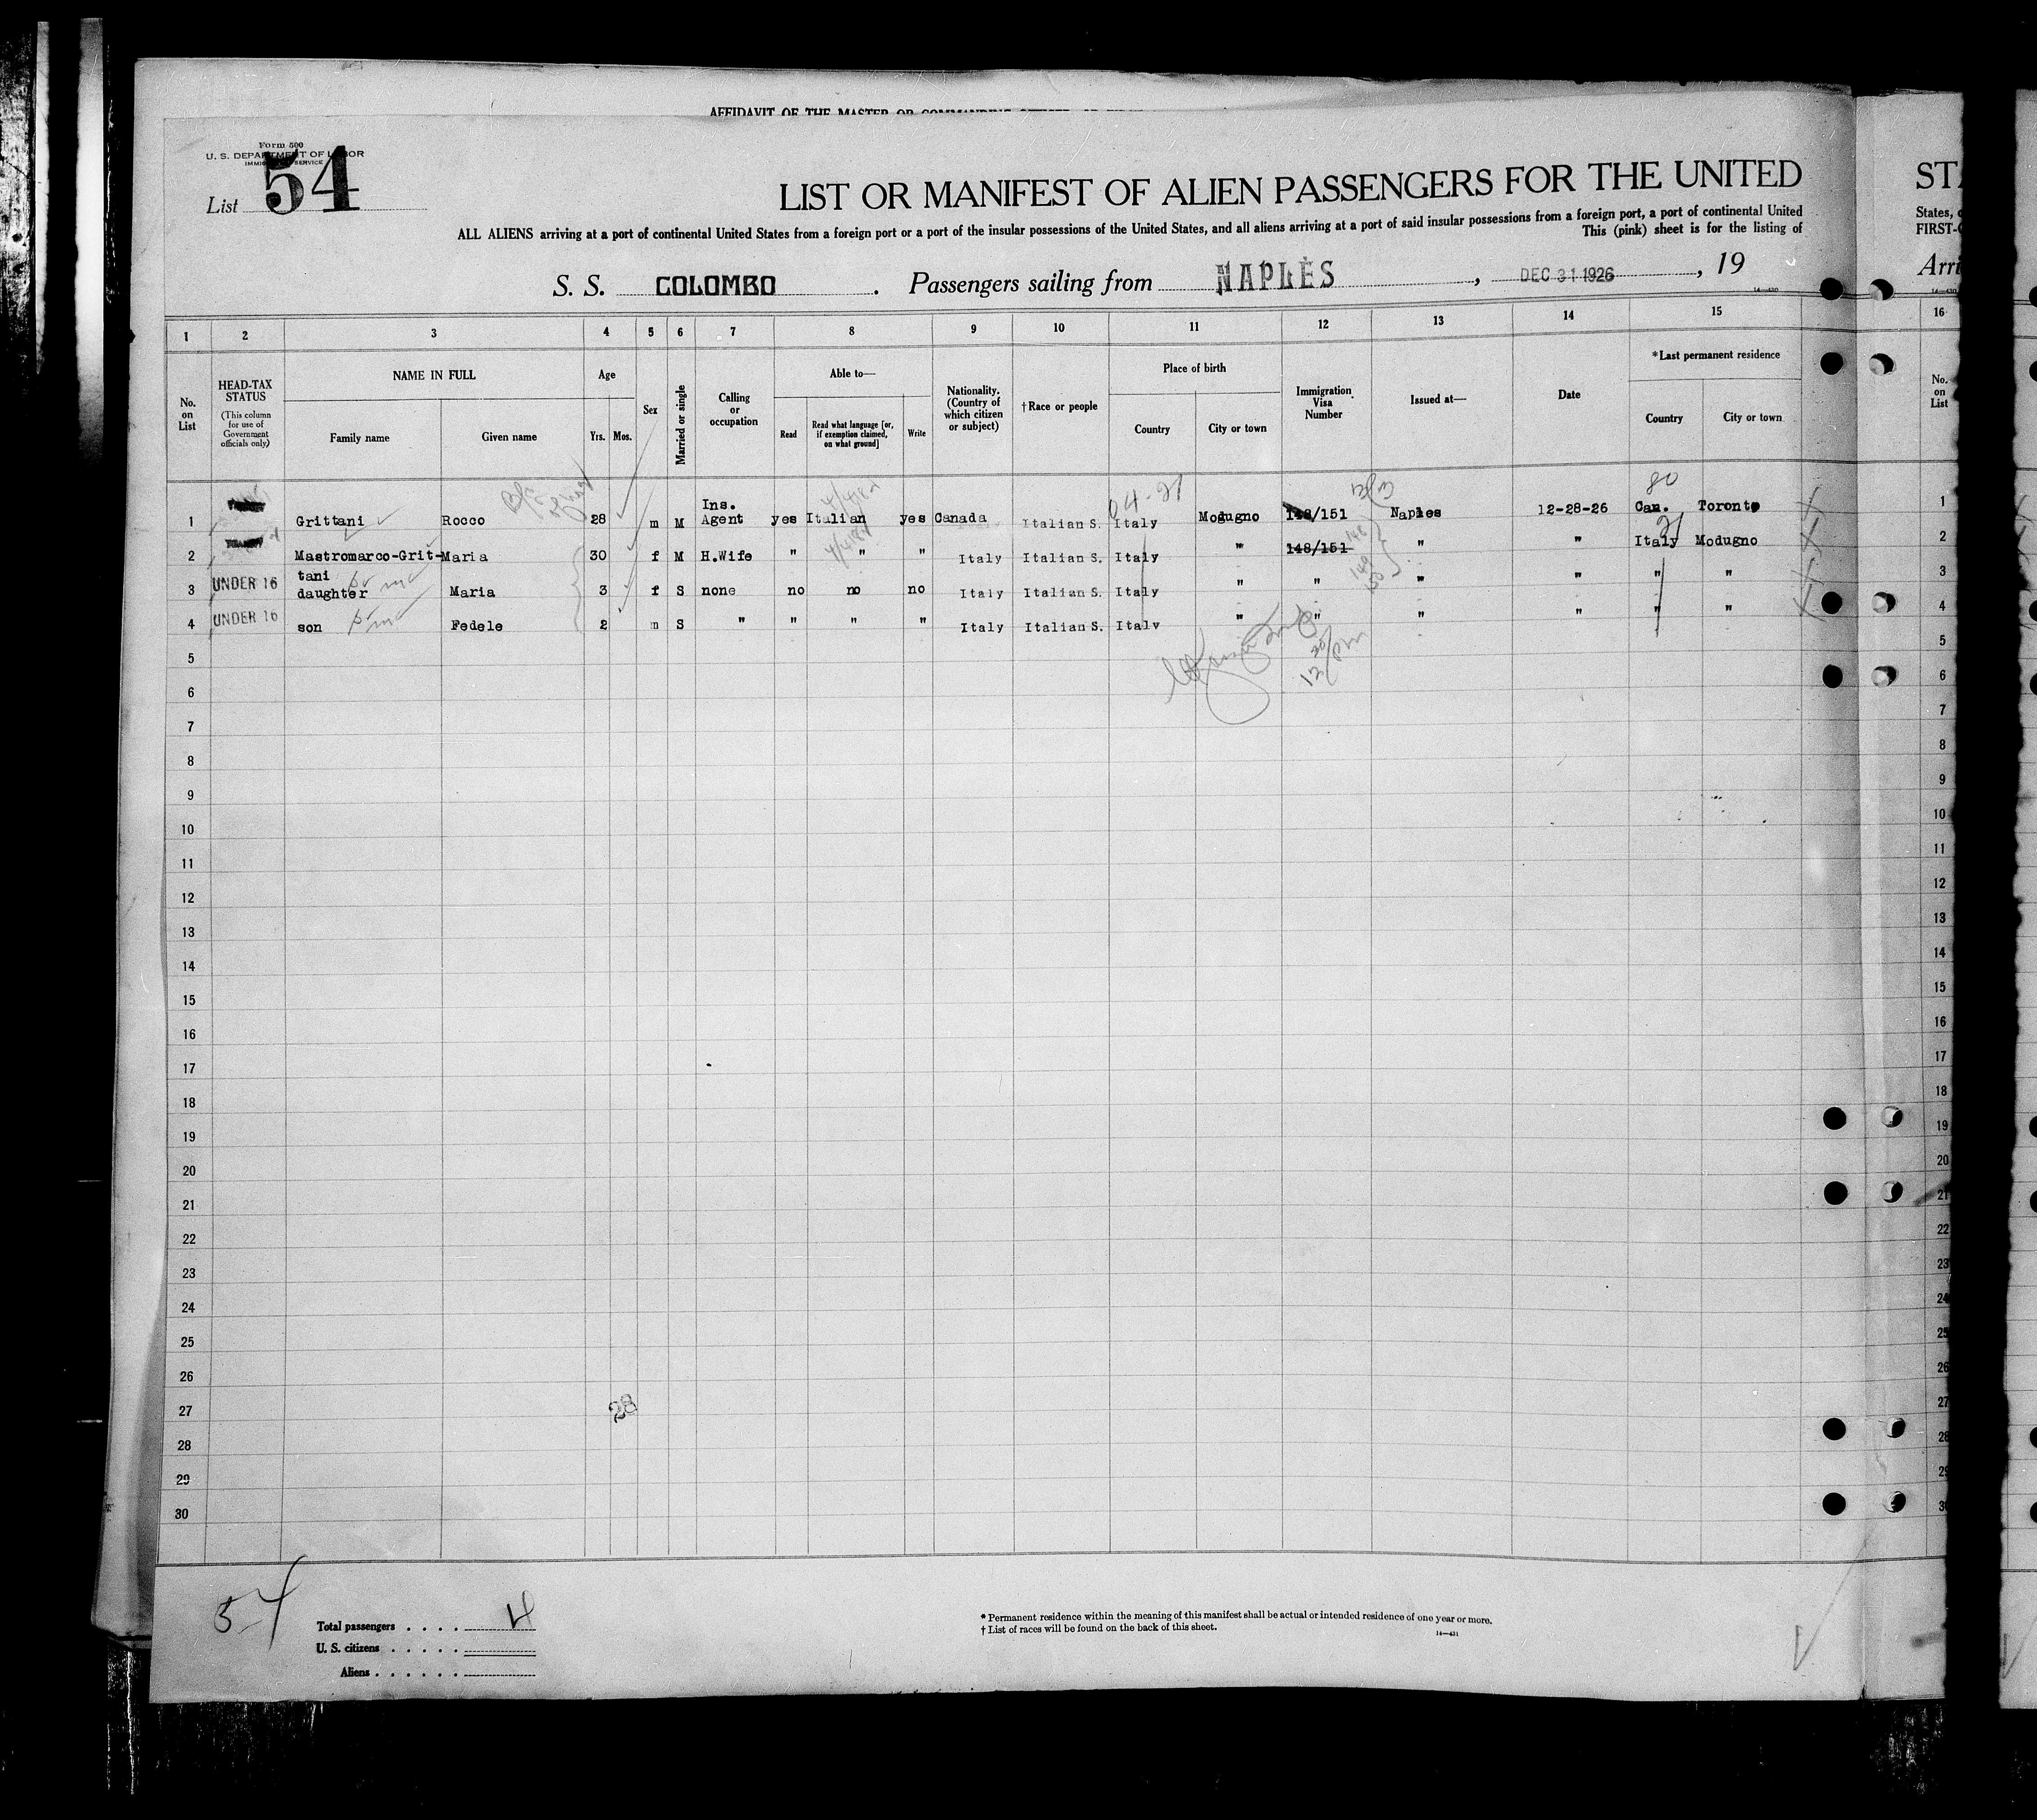 AFFIDAVIT OF THE MASTER OR COMMANDING OFFICER
Form 500
U. S. DEPARTMENT OF LABOR
IMMIGRATION SERVICE
List 54
LIST OR MANIFEST OF ALIEN PASSENGERS FOR THE UNITED
ALL ALIENS arriving at a port of continental United States from a foreign port or a port of the insular possessions of the United States, and all aliens arriving at a port of said insular possessions from a foreign port, a port of continental United
This (pink) sheet is for the listing of
S. S. COLOMBO . Passengers sailing from NAPLES , DEC 31 1926 , 19
ST
States,
FIRST-
Arri
1 2 3 4 5 6 7 8 9 10 11 12 13 14 15 16
No. on List
HEAD-TAX STATUS
(This column for use of Government officials only)
NAME IN FULL
Family name Given name
Age
Yrs. Mos.
Sex
Married or single
Calling or occupation
Able to—
Read
Read what language [or, if exemption claimed, on what ground]
Write
Nationality. (Country of which citizen or subject)
† Race or people
Place of birth
Country City or town
Immigration Visa Number
Issued at—
Date
* Last permanent residence
Country City or town
No. on List
04-21 80
1 Grittani Rocco 28 m M Ins. Agent yes Italian yes Canada Italian S. Italy Modugno 148/151 Naples 12-28-26 Can. Toronto 1
2 Mastromarco-Grit-tani Maria 30 f M H.Wife " " " Italy Italian S. Italy " 148/151 " " Italy Modugno 2
3 UNDER 16 daughter Maria 3 f S none no no no Italy Italian S. Italy " " " " " " 3
4 UNDER 16 son Fedele 2 m S " " " " Italy Italian S. Italy " " " " " " 4
5 5
6 6
7 7
8 8
9 9
10 10
11 11
12 12
13 13
14 14
15 15
16 16
17 17
18 18
19 19
20 20
21 21
22 22
23 23
24 24
25 25
26 26
27 28 27
28 28
29 29
30 30
54
Total passengers . . . . 4
U. S. citizens . . . . .
Aliens . . . . . .
* Permanent residence within the meaning of this manifest shall be actual or intended residence of one year or more.
† List of races will be found on the back of this sheet.
14—431